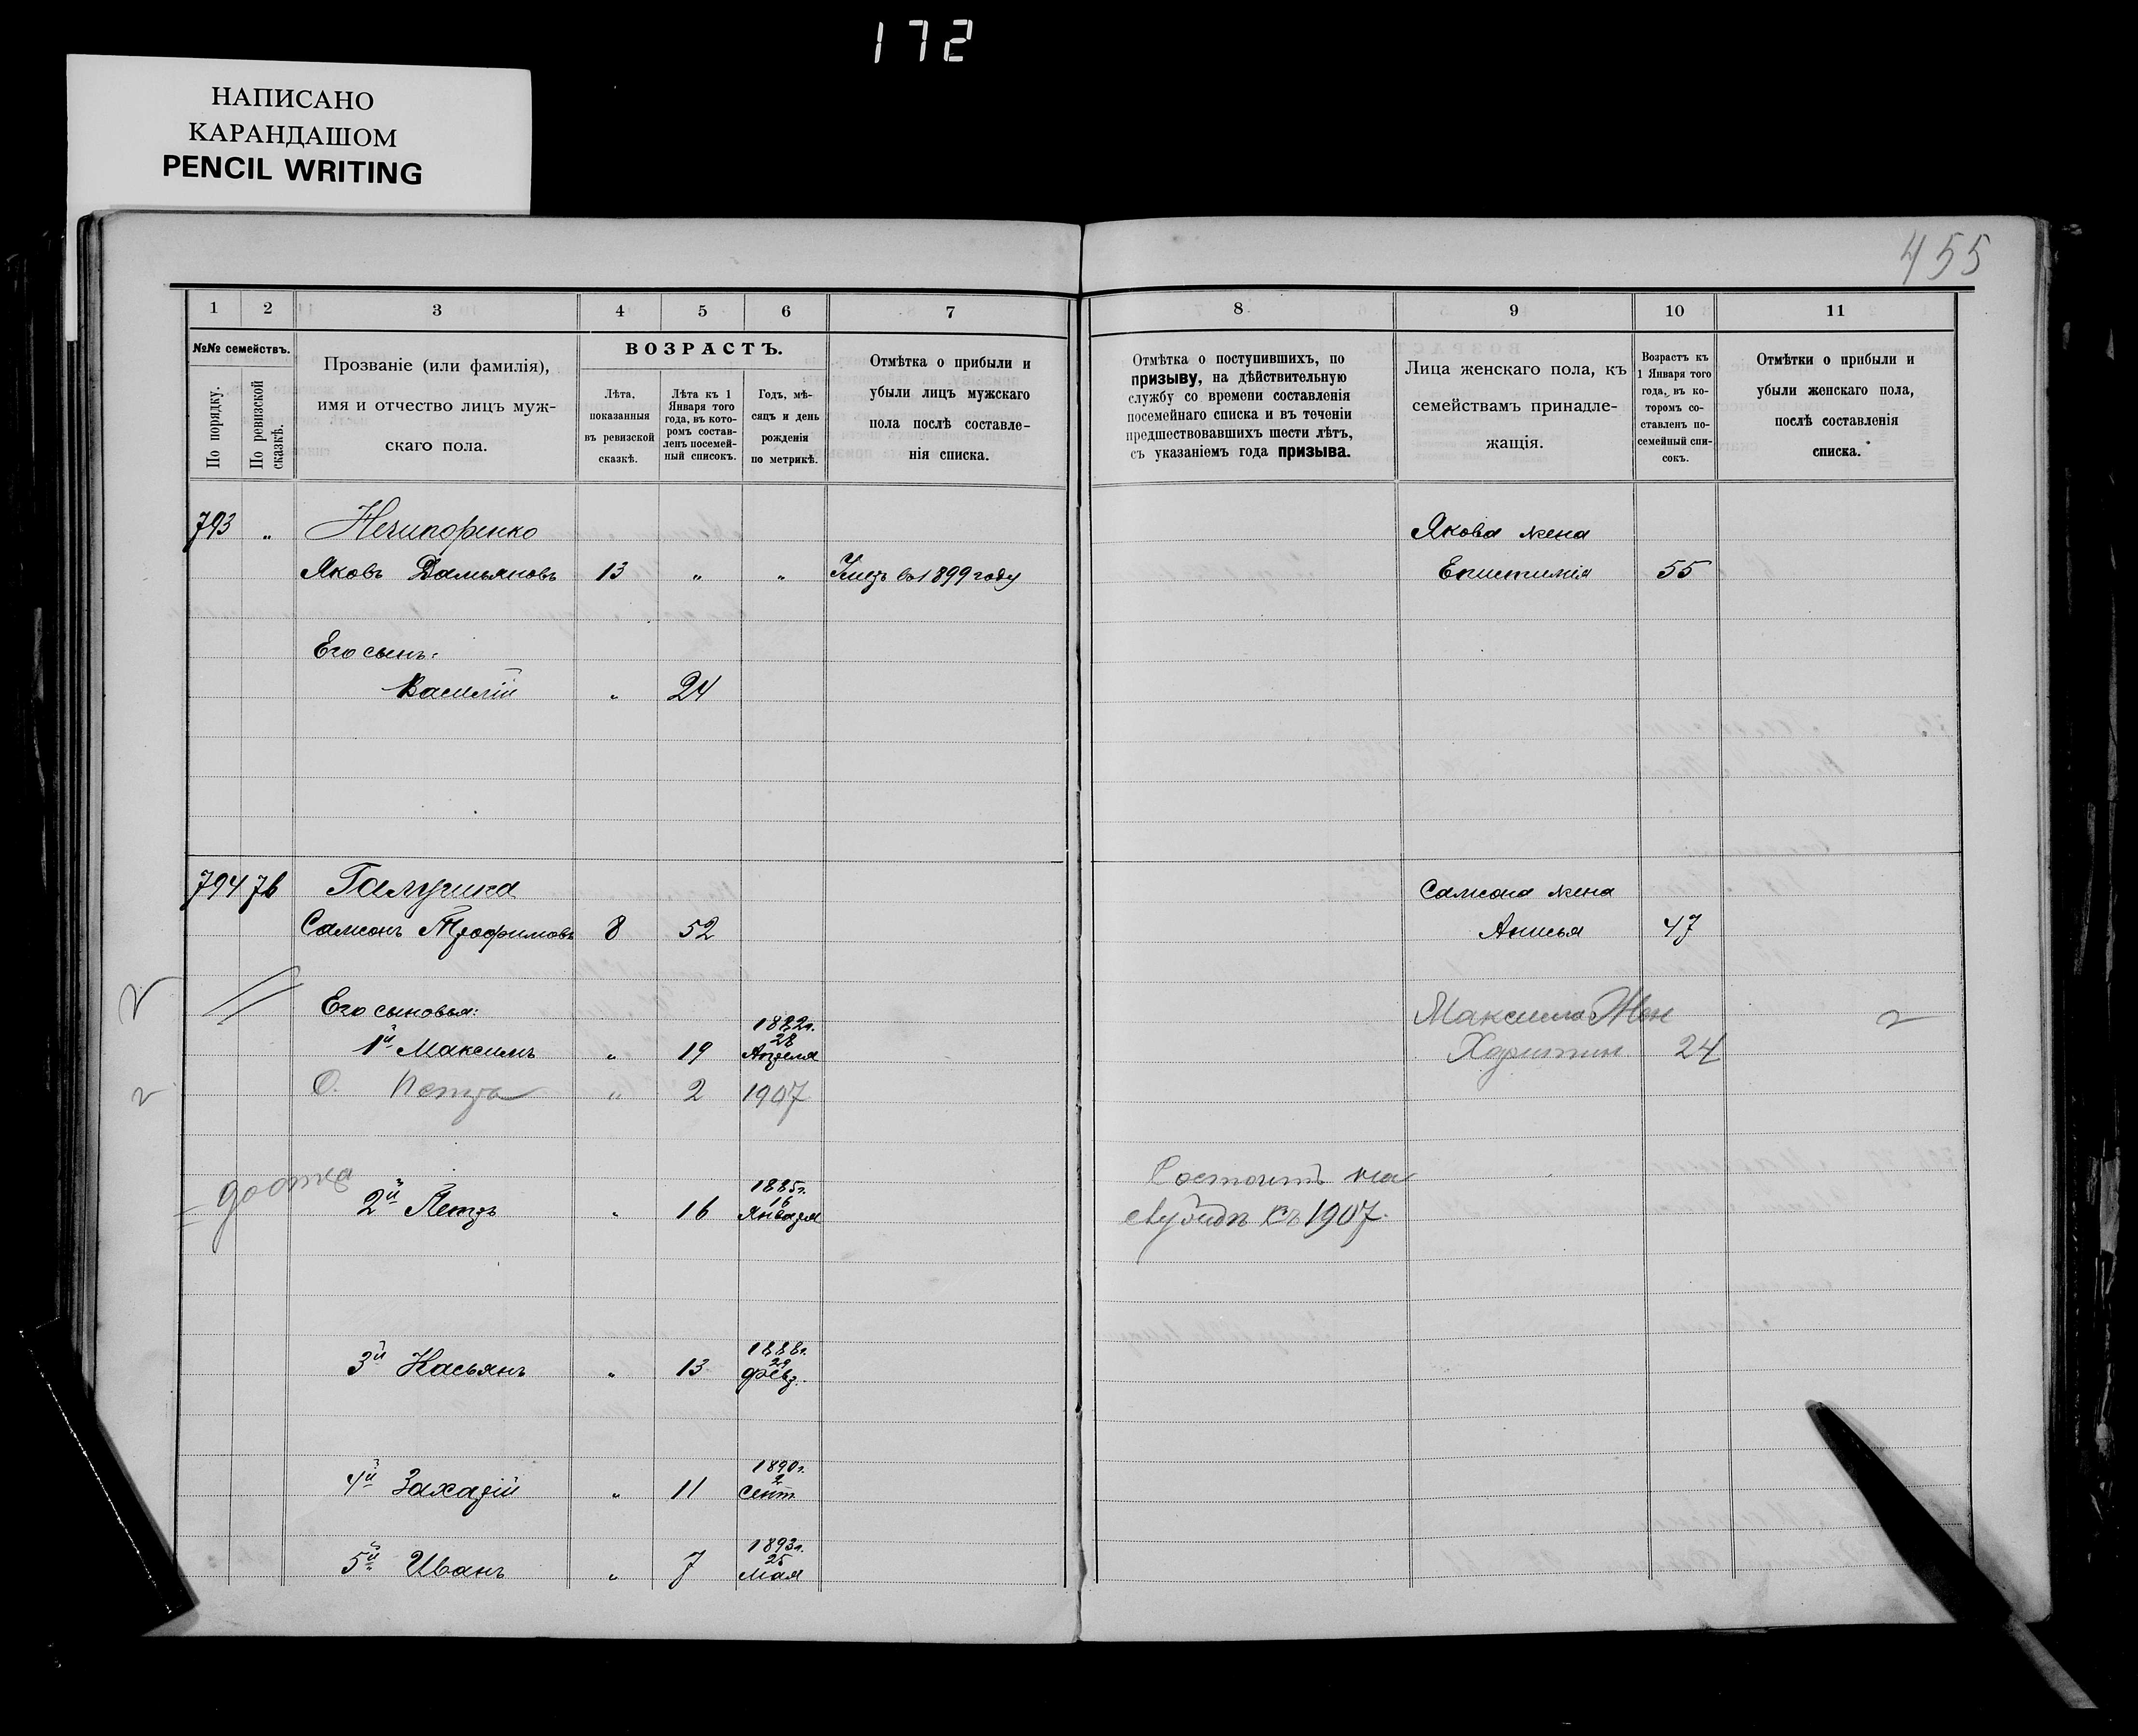 172
НАПИСАНО
КАРАНДАШОМ
PENCIL WRITING
455
1 2 3 4 5 6 7
№№ семействъ.
По порядку.
По ревизской сказкѣ.
Прозваніе (или фамилія),
имя и отчество лицъ муж-
скаго пола.
ВОЗРАСТЪ.
Лѣта,
показанныя
въ ревизской
сказкѣ.
Лѣта къ 1
Января того
года, въ кото-
ромъ состав-
ленъ посемей-
ный списокъ.
Годъ, мѣ-
сяцъ и день
рожденія
по метрикѣ.
Отмѣтка о прибыли и
убыли лицъ мужскаго
пола послѣ составле-
нія списка.
793 „ Нечипоренко
Яковъ Дамьяновъ 13 „ „ Умеръ въ 1899 году
Его сынъ:
Василій „ 24
794 76 Галушка
Самсонъ Трофимовъ 8 52
Его сыновья:
1й Максимъ „ 19 1882г. 28 Апреля
С. Петръ „ 2 1907
2й Петръ „ 16 1885г. 16 Января
3й Касьянъ „ 13 1888г. 29 Февр.
4й Захарій „ 11 1890г. 2 Сент
5й Иванъ „ 7 1893г. 25 Мая
8 9 10 11
Отмѣтка о поступившихъ, по
призыву, на дѣйствительную
службу со времени составленія
посемейнаго списка и въ теченіи
предшествовавшихъ шести лѣтъ,
съ указаніемъ года призыва.
Лица женскаго пола, къ
семействамъ принадле-
жащія.
Возрастъ къ
1 Января того
года, въ ко-
торомъ со-
ставленъ по-
семейный спи-
сокъ.
Отмѣтки о прибыли и
убыли женскаго пола,
послѣ составленія
списка.
Якова жена
Епистимія 55
Самсона жена
Анисья 47
Максима Жен
Харитин 24
Состоитъ на
службѣ съ 1907.